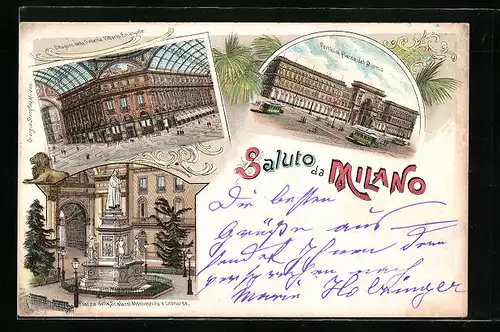 Ottagono della Galleria Vittorio Emanuele
Portici in Piazza del Duomo
Saluto da MILANO
Piazza della Scala col Monumento a Leonardo.
Die besten
Grüße aus
sendet Ihnen dem
versprechen nach
Marie Holzinger